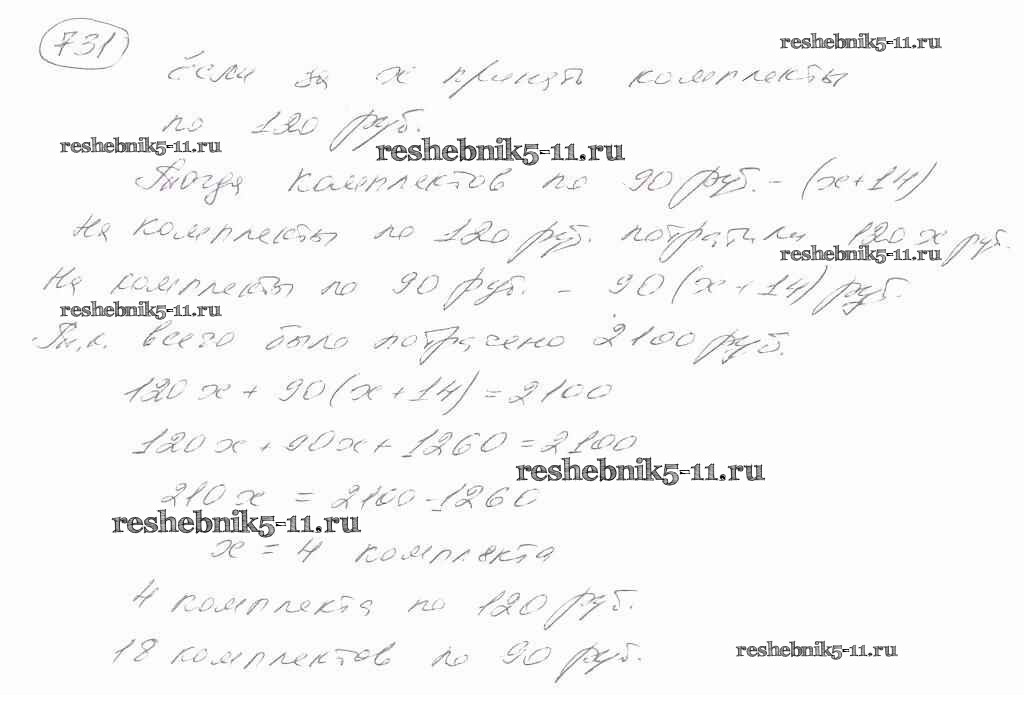 731
reshebnik5-11.ru
Если за x принять комплекты
по 120 руб.
reshebnik5-11.ru
reshebnik5-11.ru
Тогда комплектов по 90 руб. - (x+14)
На комплекты по 120 руб. потратили 120x руб.
reshebnik5-11.ru
На комплекты по 90 руб. - 90(x+14) руб.
reshebnik5-11.ru
Т.к. всего было потрачено 2100 руб.
120x + 90(x+14) = 2100
120x + 90x + 1260 = 2100
reshebnik5-11.ru
210x = 2100-1260
reshebnik5-11.ru
x = 4 комплекта
4 комплекта по 120 руб.
18 комплектов по 90 руб.
reshebnik5-11.ru